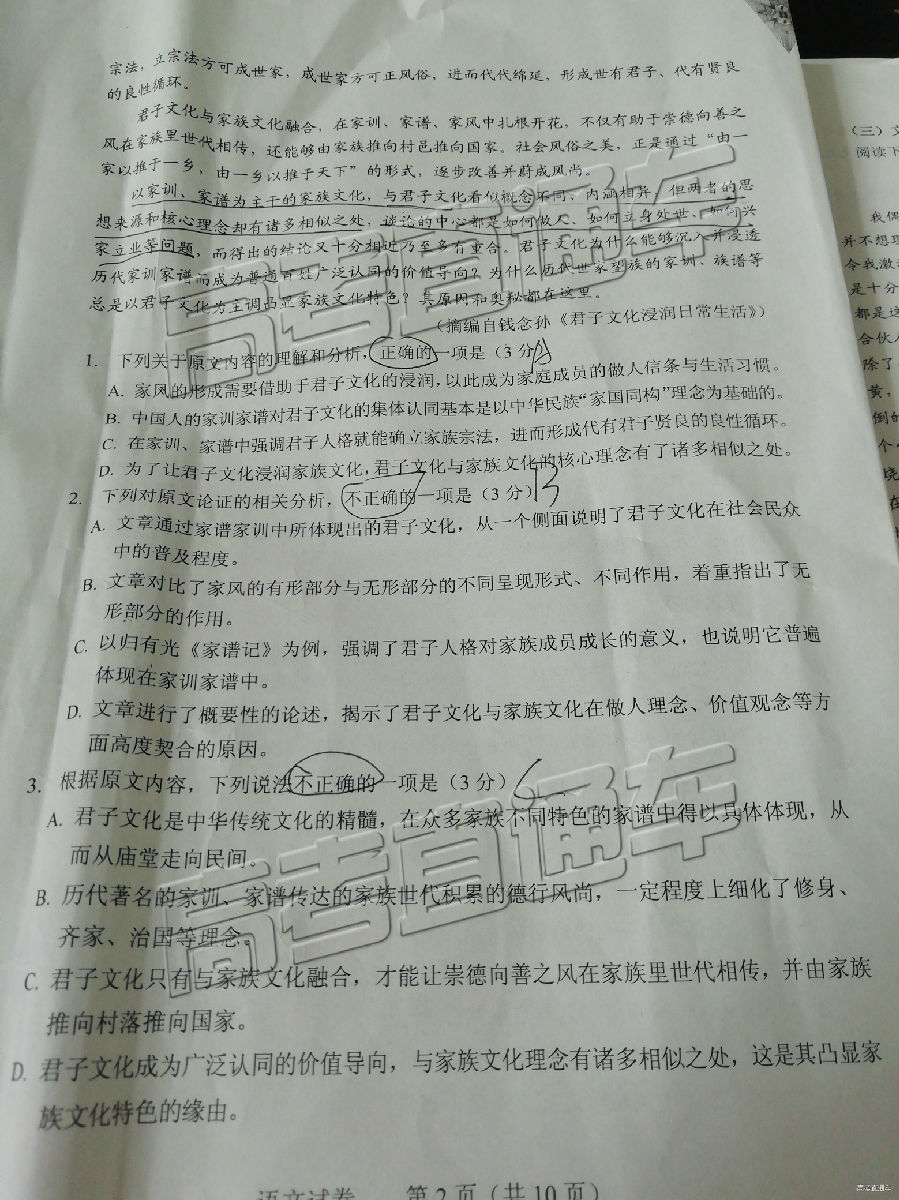 宗法，立宗法方可成世家，成世家方可正风俗，进而代代绵延，形成世有君子、代有贤良
的良性循环。
君子文化与家族文化融合，在家训、家谱、家风中扎根开花，不仅有助于崇德向善之
风在家族里世代相传，还能够由家族推向村邑推向国家。社会风俗之美，正是通过“由一
家以推于一乡，由一乡以推于天下”的形式，逐步改善并蔚成风尚。
以家训、家谱为主干的家族文化，与君子文化看似概念不同、内涵相异，但两者的思
想来源和核心理念却有诸多相似之处，谈论的中心都是如何做人、如何立身处世、如何兴
家立业等问题，而得出的结论又十分相近乃至多有重合。君子文化为什么能够沉入并浸透
历代家训家谱而成为普通百姓广泛认同的价值导向？为什么历代世家望族的家训、族谱等
总是以君子文化为主调凸显家族文化特色？其原因和奥秘都在这里。
（摘编自钱念孙《君子文化浸润日常生活》）
1. 下列关于原文内容的理解和分析，正确的一项是（3 分）
A. 家风的形成需要借助于君子文化的浸润，以此成为家庭成员的做人信条与生活习惯。
B. 中国人的家训家谱对君子文化的集体认同基本是以中华民族“家国同构”理念为基础的。
C. 在家训、家谱中强调君子人格就能确立家族宗法，进而形成代有君子贤良的良性循环。
D. 为了让君子文化浸润家族文化，君子文化与家族文化的核心理念有了诸多相似之处。
2. 下列对原文论证的相关分析，不正确的一项是（3 分）B
A. 文章通过家谱家训中所体现出的君子文化，从一个侧面说明了君子文化在社会民众
中的普及程度。
B. 文章对比了家风的有形部分与无形部分的不同呈现形式、不同作用，着重指出了无
形部分的作用。
C. 以归有光《家谱记》为例，强调了君子人格对家族成员成长的意义，也说明它普遍
体现在家训家谱中。
D. 文章进行了概要性的论述，揭示了君子文化与家族文化在做人理念、价值观念等方
面高度契合的原因。
3. 根据原文内容，下列说法不正确的一项是（3 分）C
A. 君子文化是中华传统文化的精髓，在众多家族不同特色的家谱中得以具体体现，从
而从庙堂走向民间。
B. 历代著名的家训、家谱传达的家族世代积累的德行风尚，一定程度上细化了修身、
齐家、治国等理念。
C. 君子文化只有与家族文化融合，才能让崇德向善之风在家族里世代相传，并由家族
推向村落推向国家。
D. 君子文化成为广泛认同的价值导向，与家族文化理念有诸多相似之处，这是其凸显家
族文化特色的缘由。
语文试卷 第 2 页（共 10 页）
（三）文
阅读下
我偶
并不想理
令我激
是十分
都是这
合伙人
除了
黄，
倒的
个
烧
在
高考直通车
高考直通车
高考直通车